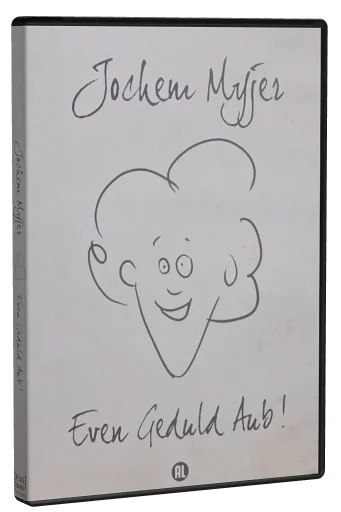 Jochem Myjer
Even Geduld Aub!
AL
Jochem Myjer
Even Geduld Aub!